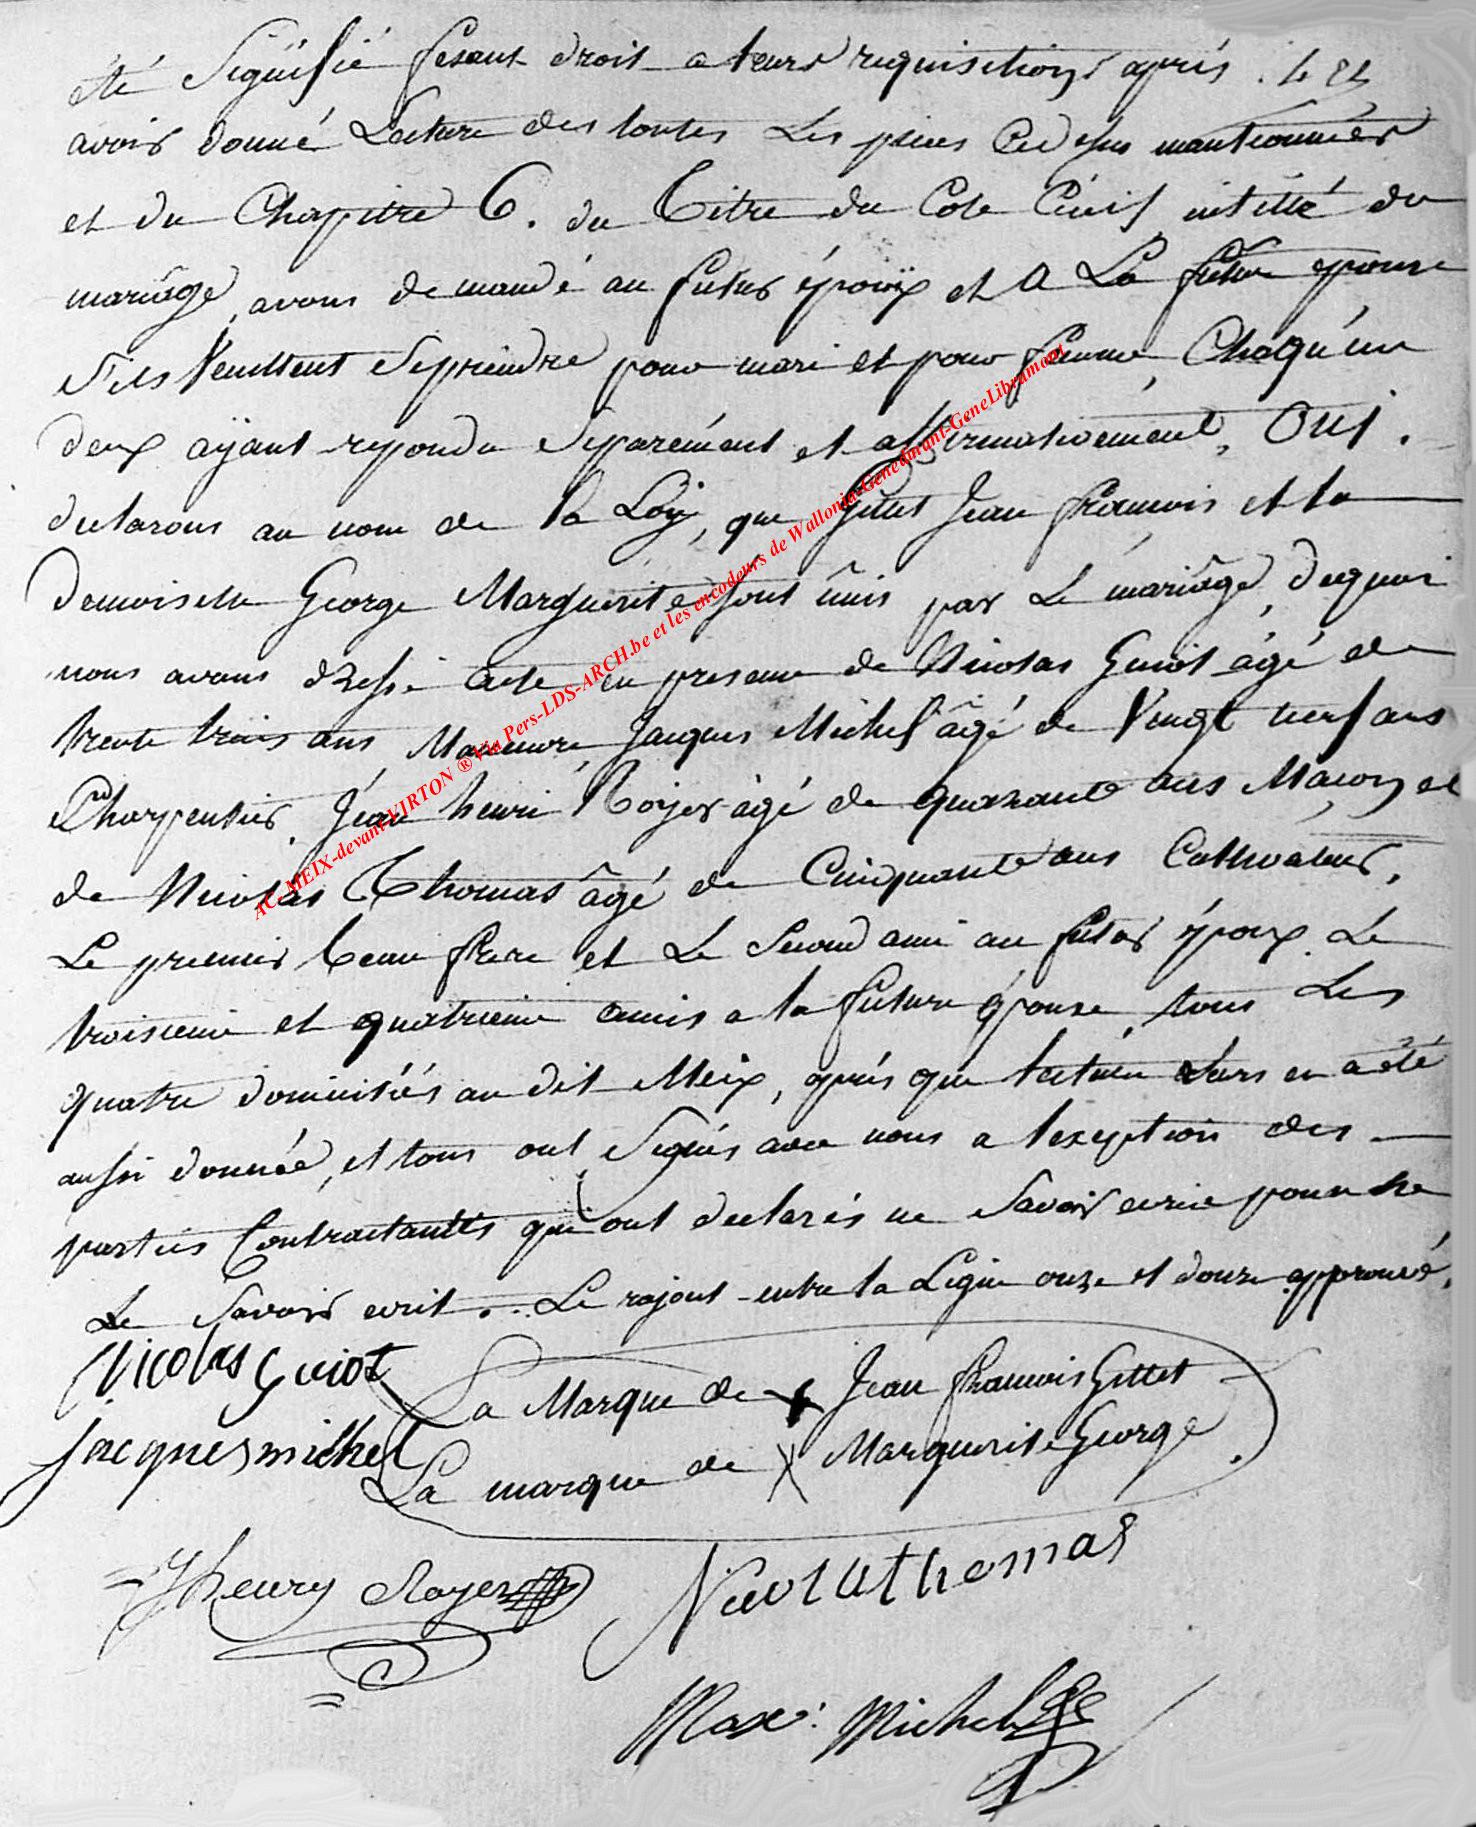 été Signifié fesant droit a leurs requisitions aprés
avoir donné Lecture des toutes Les pieces Cidessus mantionnées
et du Chapitre 6. du Titre du Code Civil intitlé du
mariâge, avons demandé au futur époux et a La future epouse
S'ils Veuillent Seprendre pour mari et pour femme, Chaqu'un
deux aÿant repondu Séparément et affirmativement, Oui.
declarons au nom de la Loy, que Gillet Jean francois et la
demoiselle George Marguerite sont ûnis par Le mariâge, dequoi
nous avons dressé acte en presence de Nicolas Guiot âgé de
trente trois ans Manœuvre, Jacques Michel âgé de Vingt neuf ans
Charpentier, Jéan henri Royer âgé de quarante ans Maçon et
de Nicolas Thomas âgé de Cinquante ans Cultivateur,
Le premier beau frere et Le Second ami au futur époux Le
troisieme et quatrieme amis a la future épouse, tous Les
quatre domiciliés au dit Meix, aprés que lecture Leurs en a été
aussi donnée, et tous ont Signés avec nous a lexeption des
parties Contractantes qui ont declarés ne Savoir ecrire pour ne
Le Savoir ecrit. Le rajout entre la Ligne onze et douze approuvé.
Nicolas Guiot
La Marque de x Jean francois Gillet
jacques michel
La marque de X Marguerite George
JHenry Royer
Nicolas thomas
Max: Michel
AC. MEIX-devant-VIRTON ® Via Pers-LDS-ARCH.be et les encodeurs de Wallonia-Genedinant-GeneLibramont